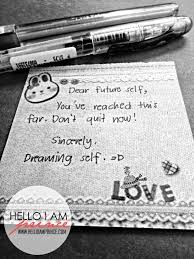 Dear future self,
You've reached this
far. Don't quit now!
Sincerely,
Dreaming self. =D
LOVE
HELLO I AM
prince
WWW.HELLOIAMPRINCE.COM